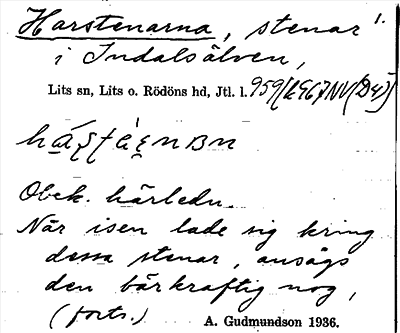 Harstenarna, stenar 1.
i Indalsälven,
Lits sn, Lits o. Rödöns hd, Jtl. l.
Obek. härledn.
När isen lade sig kring
dessa stenar, ansågs
den bärkraftig nog,
(forts.) A. Gudmundson 1936.